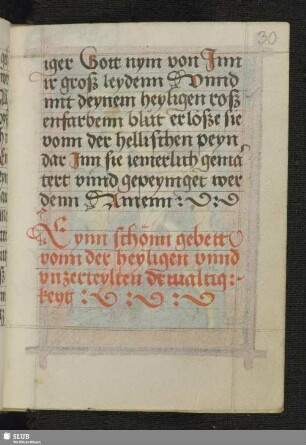 30
iger Gott nym von Inn
ir groß leydenn Vnnd
mit deynem heyligen roß
enfarbenn blut erlöße sie
vonn der hellischen peyn
dar Inn sie iemerlich gema
tert vnnd gepeyniget wer
denn Amenn :
Eynn schönn gebett
vonn der heyligen vnnd
vnzerteylten dreualtig:
keytt :
SLUB